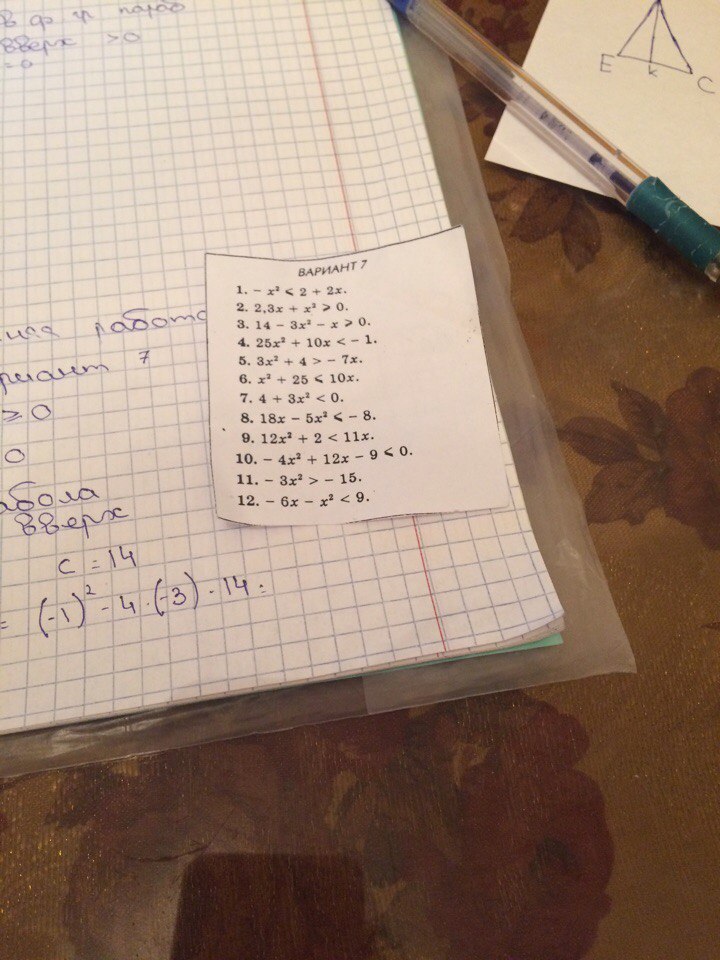 вверх >0
= 0
работа
7
≥ 0
0
вверх
c = 14
= (-1)² - 4 · (-3) · 14 =
E
K
C
ВАРИАНТ 7
1. – x² ⩽ 2 + 2x.
2. 2,3x + x² ⩾ 0.
3. 14 – 3x² – x ⩾ 0.
4. 25x² + 10x < – 1.
5. 3x² + 4 > – 7x.
6. x² + 25 ⩽ 10x.
7. 4 + 3x² < 0.
8. 18x – 5x² ⩽ – 8.
9. 12x² + 2 < 11x.
10. – 4x² + 12x – 9 ⩽ 0.
11. – 3x² > – 15.
12. – 6x – x² < 9.